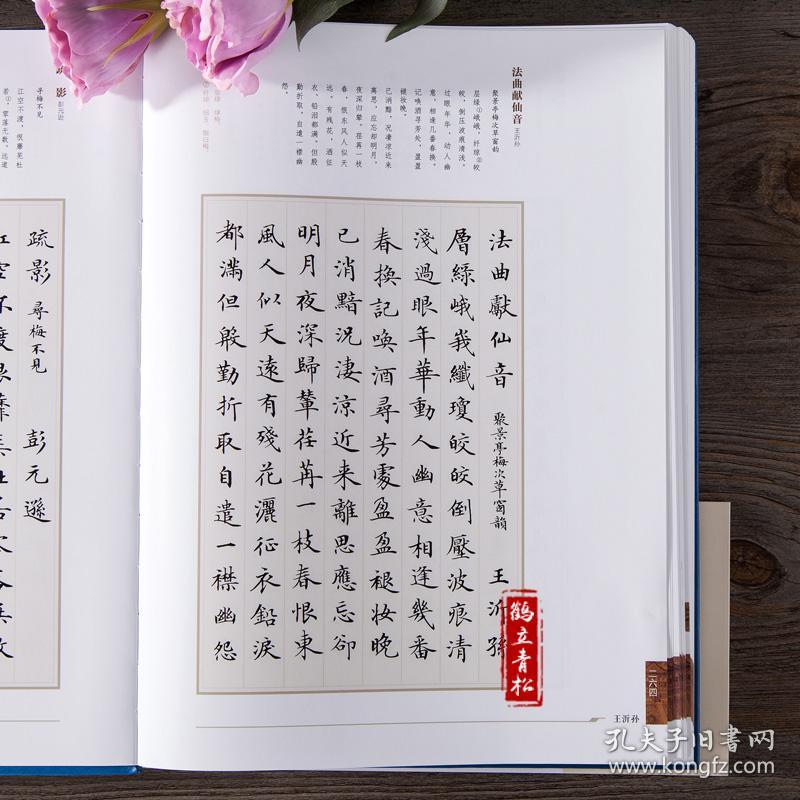 法曲献仙音 王沂孙
聚景亭梅次草窗韵
层绿①峨峨，纤琼②皎
皎，倒压波痕清浅。
过眼年华，动人幽
意，相逢几番春换。
记唤酒寻芳处，盈盈
褪妆晚。
已消黯，况凄凉近来
离思，应忘却明月，
夜深归辇。荏苒一枝
春，恨东风人似天
远。有残花，洒征
衣、铅泪都满。但殷
勤折取，自遣一襟幽
怨。
绿梅。
②纤琼：细玉，指白梅。
法曲獻仙音 聚景亭梅次草窗韻 王沂孫
層綠峨峩纖瓊皎皎倒壓波痕清
淺過眼年華動人幽意相逢幾番
春換記喚酒尋芳處盈盈褪妝晚
已消黯況淒涼近来離思應忘卻
明月夜深歸輦荏苒一枝春恨東
風人似天遠有殘花灑征衣鉛淚
都滿但殷勤折取自遣一襟幽怨
鶴立青松
王沂孙
二六四
影 彭元逊
寻梅不见
江空不渡，恨蘼芜杜
若①，零落无数。远道
疏影 尋梅不見 彭元遜
孔夫子旧书网
www.kongfz.com